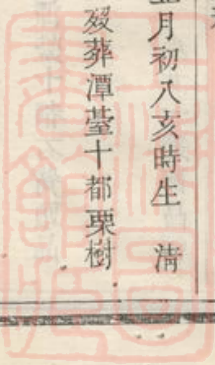 月初八亥時生　清
歿葬潭臺十都栗樹